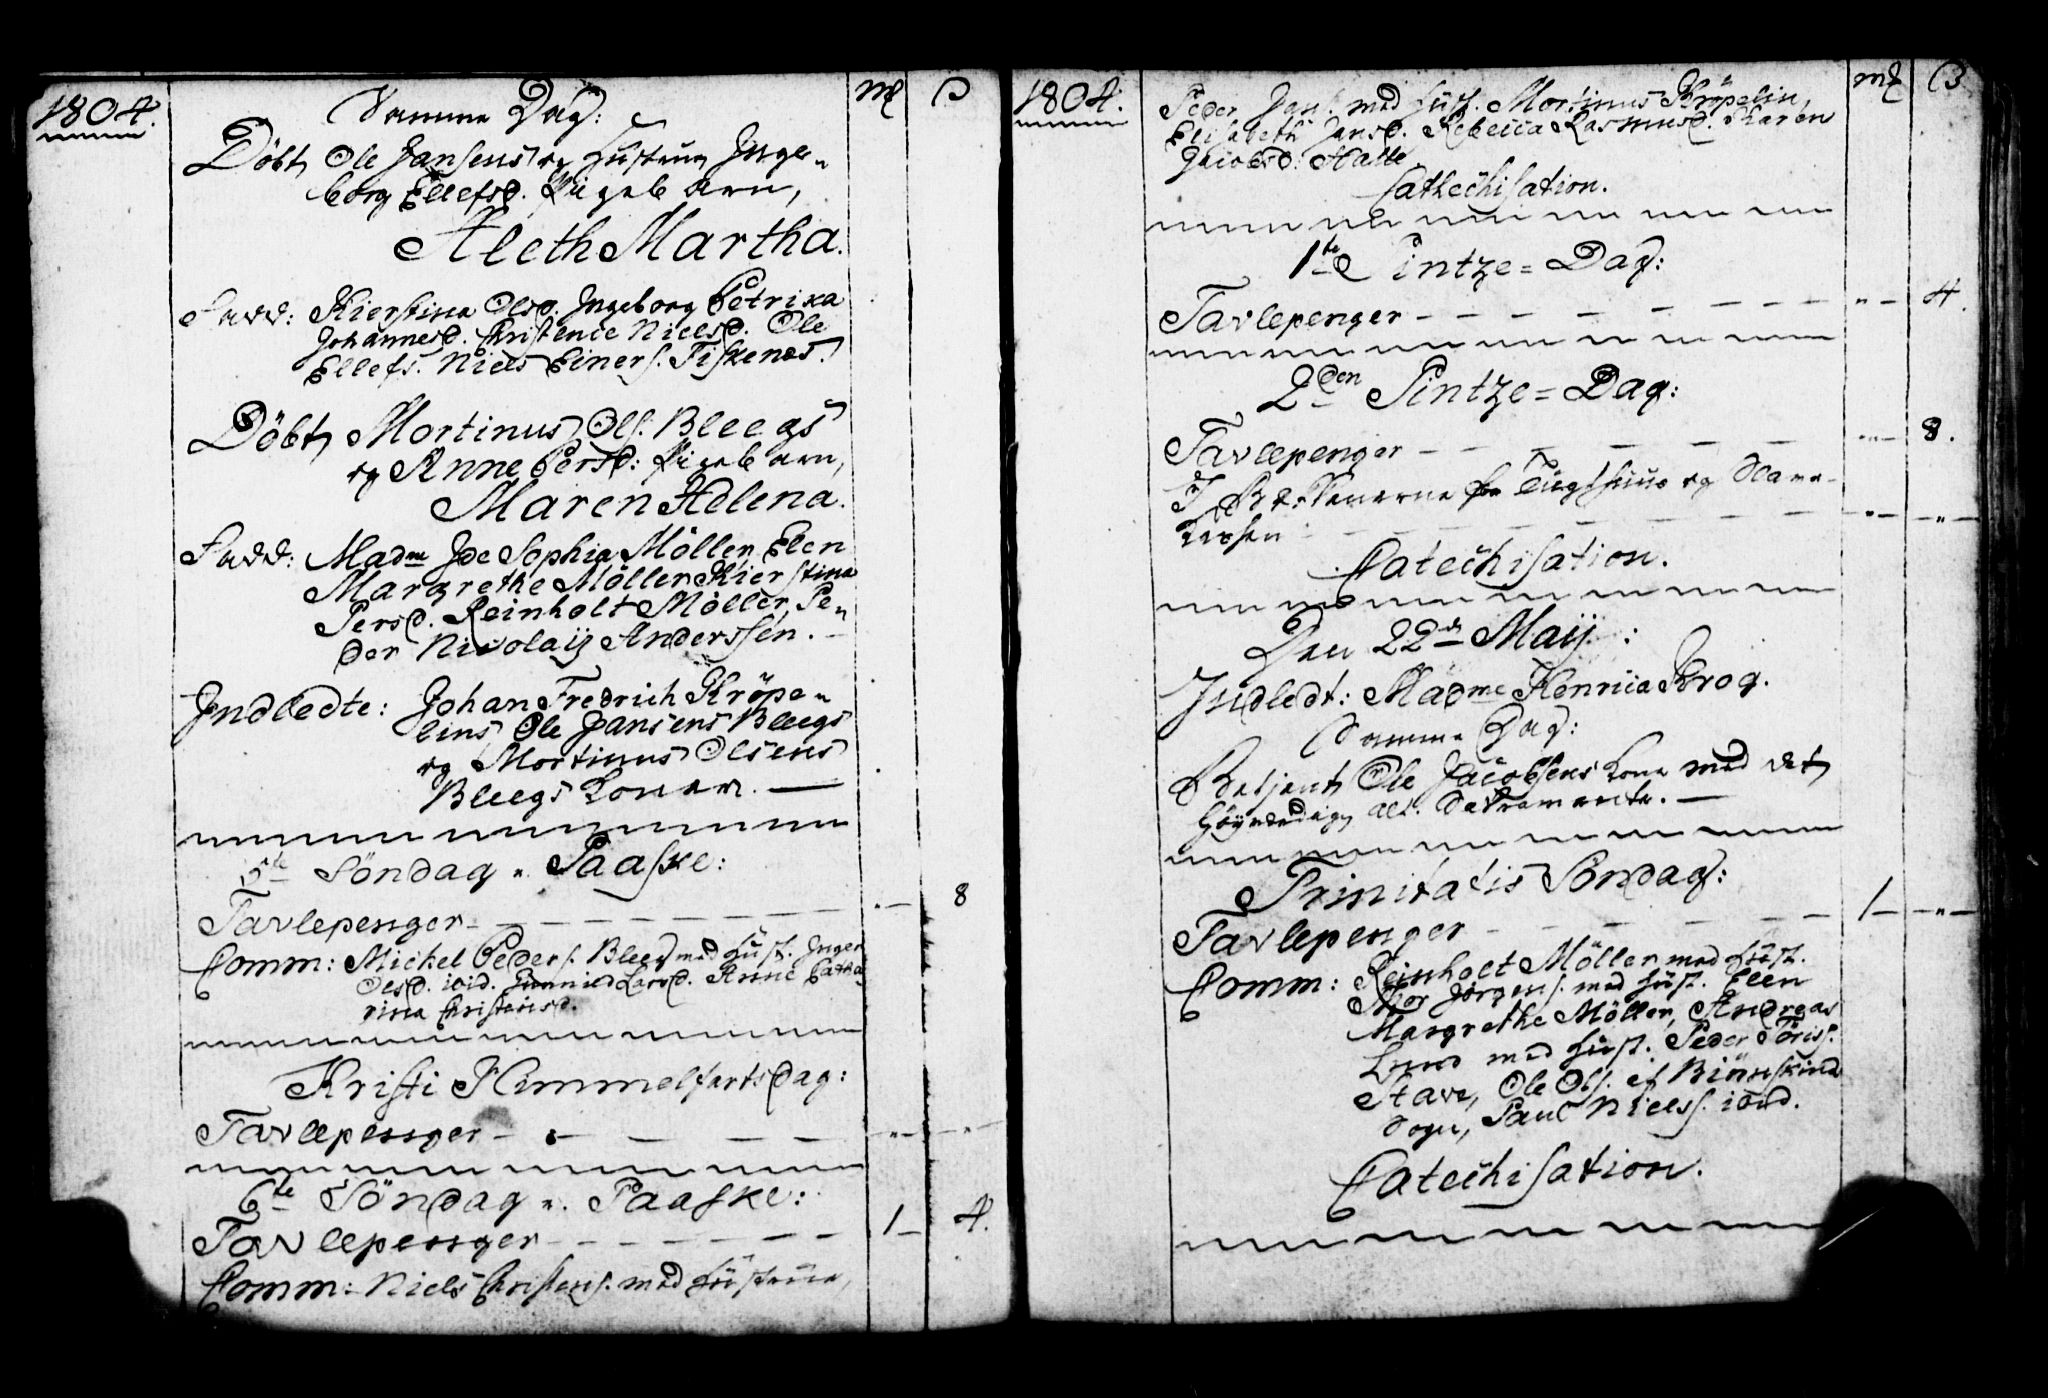 1804.
mk ß
Samme Dag:
Döbt Ole Jansens og Hustrue Inge-
borg Ellefsd. Pigebarn,
Aleth Martha.
Fadd: Kierstina Olsd. Ingeborg Petrika
Johannesd. Christence Nielsd. Ole
Ellefs. Niels Einers. Fiskenes.
Döbt Mortinus Ols. Bleegs
og Anne Persd: Pigebarn,
Maren Helena.
Fadd: Madme Ide Sophia Möller, Elen
Margrethe Möller, Kierstina
Persd. Reinholt Möller, Pe-
der Nicolaij Anderssen.
Indledte: Johan Fredrich Kröpe-
lins Ole Jansens Bleegs
og Mortinus Olsens
Bleegs Koner.
5te Söndag n. Paaske:
Tavlepenger - - - 8
Comm: Michel Peders. Bleeg med Hust. Inger
Olsd. ibid. Gunnild Larsd. Anne Catha-
rina Christensd.
Kristi Himmelfarts Dag:
Tavlepenger - - -
6te Söndag n. Paaske:
Tavlepenger - - - 1 - 4.
Comm: Niels Christens. med Hustrue,
1804.
mk ß
Peder Jans. med Hust. Mortinus Kröpelin,
Elisabeth Jansd. Rebecca Rasmusd. Karen
Jacobsd: Halle
Cathechisation.
1te Pintze = Dag:
Tavlepenger - - - " - 4.
2den Pintze = Dag:
Tavlepenger - - - " - 8.
I Bekkenerne for Tugthuus og
- - - " - "
Catechisation.
Den 22de Maij:
Indledt: Madme Henrica Krog.
Samme Dag:
Betjent Ole Jacobsens Kone med det
Höyværdige Alt. Sakramente.
Trinitatis Söndag:
Tavlepenger - - - 1 - " -
Comm: Reinholt Möller med Hust.
Jörgens. med Hust. Elen
Margrethe Möller, Andreas
Lund med Hust. Peder
Stave, Ole Ols. af
Sogn, Paul Niels. ibid.
Catechisation.